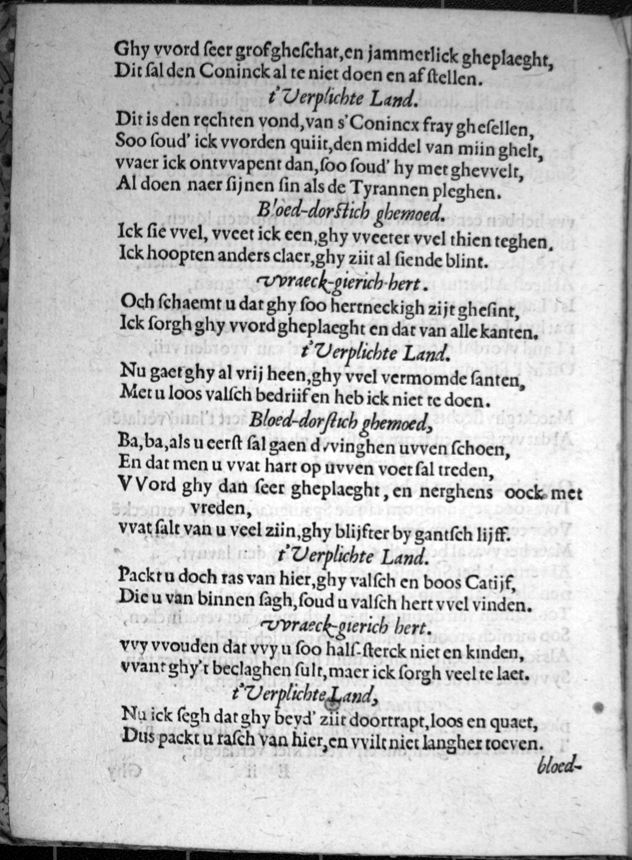 Ghy vvord ſeer grofgheſchat,en jammerlick gheplaeght,
Dit ſal den Coninck al te niet doen en af ſtellen.
t'Verplichte Land.
Dit is den rechten vond,van s'Conincx fray gheſellen,
Soo ſoud' ick vvorden quiit,den middel van miin ghelt,
vvaer ick ontvvapent dan,ſoo ſoud' hy met ghevvelt,
Al doen naer ſijnen ſin als de Tyrannen pleghen.
Bloed-dorſtich ghemoed.
Ick ſie vvel, vveet ick een,ghy vveeter vvel thien teghen.
Ick hoopten anders claer,ghy ziit al ſiende blint.
vvraeck-gierich-hert.
Och ſchaemt u dat ghy ſoo hertneckigh zijt gheſint,
Ick ſorgh ghy vvord gheplaeght en dat van alle kanten.
t'Verplichte Land.
Nu gaet ghy al vrij heen,ghy vvel vermomde ſanten,
Met u loos valſch bedriif en heb ick niet te doen.
Bloed-dorſtich ghemoed,
Ba,ba,als u eerſt ſal gaen dvvinghen uvven ſchoen,
En dat men u vvat hart op uvven voet ſal treden,
VVord ghy dan ſeer gheplaeght, en nerghens oock met
vreden,
vvat ſalt van u veel ziin,ghy blijfter by gantſch lijff.
t'Verplichte Land.
Packt u doch ras van hier,ghy valſch en boos Catijf,
Die u van binnen ſagh,ſoud u valſch hert vvel vinden.
vvraeck-gierich hert.
vvy vvouden dat vvy u ſoo halſ-ſterck niet en kinden,
vvant ghy't beclaghen ſult,maer ick ſorgh veel te laet.
t'Verplichte Land,
Nu ick ſegh dat ghy beyd' ziit doortrapt,loos en quaet,
Dus packt u raſch van hier,en vvilt niet langher toeven.
bloed-